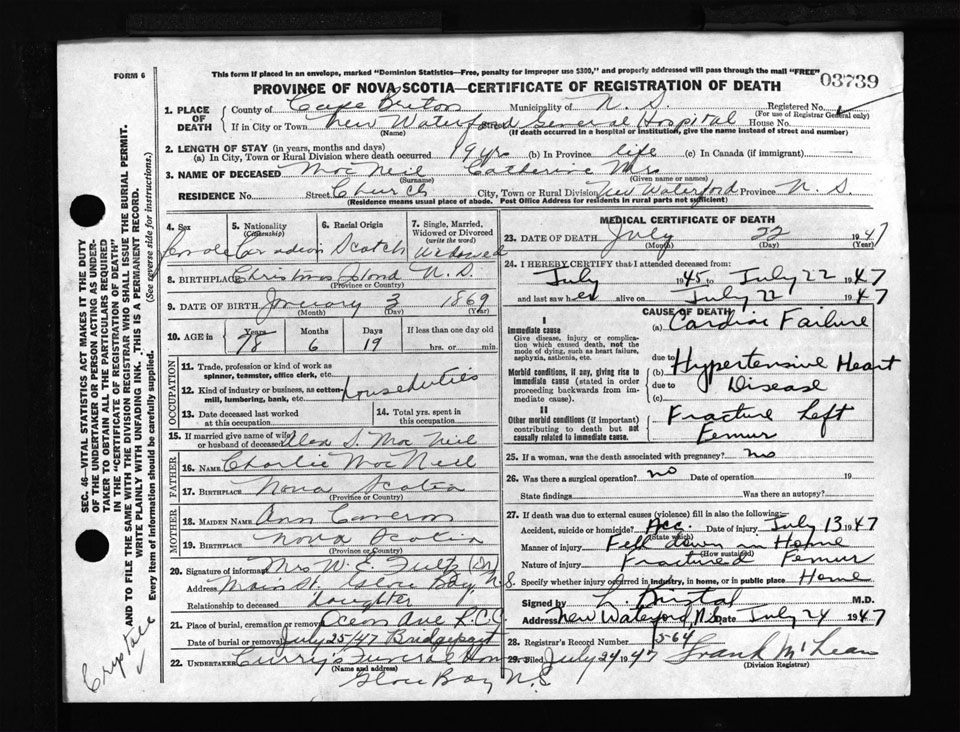 FORM 6
This form if placed in an envelope, marked "Dominion Statistics—Free, penalty for improper use $300," and properly addressed will pass through the mail "FREE"
03739
PROVINCE OF NOVA SCOTIA—CERTIFICATE OF REGISTRATION OF DEATH
1. PLACE OF DEATH
County of Cape Breton Municipality of N. S. Registered No.
(For use of Registrar General only)
If in City or Town New Waterford General Hospital House No.
(Name) (If death occurred in a hospital or institution, give the name instead of street and number)
2. LENGTH OF STAY (in years, months and days)
(a) In City, Town or Rural Division where death occurred 19 yrs (b) In Province life (c) In Canada (if immigrant) —
3. NAME OF DECEASED MacNeil Catherine Mrs
(Surname) (Given name or names)
RESIDENCE No. Street Church City, Town or Rural Division New Waterford Province N. S.
(Residence means usual place of abode. Post Office Address for residents in rural parts not sufficient)
4. Sex Female
5. Nationality (Citizenship) Canadian
6. Racial Origin Scotch
7. Single, Married, Widowed or Divorced (write the word) Widowed
8. BIRTHPLACE Christmas Island N. S.
(Province or Country)
9. DATE OF BIRTH January 3 1869
(Month) (Day) (Year)
10. AGE in Years 78 Months 6 Days 19 If less than one day old
hrs. or min.
OCCUPATION
11. Trade, profession or kind of work as spinner, teamster, office clerk, etc.
12. Kind of industry or business, as cotton-mill, lumbering, bank, etc. Houseduties
13. Date deceased last worked at this occupation
14. Total yrs. spent in this occupation
15. If married give name of wife or husband of deceased Alex S. MacNeil
FATHER
16. NAME Charlie MacNeil
17. BIRTHPLACE Nova Scotia
(Province or Country)
MOTHER
18. MAIDEN NAME Ann Cameron
19. BIRTHPLACE Nova Scotia
(Province or Country)
20. Signature of informant Mrs W. E.
Address Main St. Glace Bay, N. S.
Relationship to deceased daughter
21. Place of burial, cremation or removal Ocean Ave R.C.C
Date of burial or removal July 25/47 Bridgeport
22. UNDERTAKER Curry's Funeral Home
(Name and address)
Glace Bay N. S
MEDICAL CERTIFICATE OF DEATH
23. DATE OF DEATH July 22 1947
(Month) (Day) (Year)
24. I HEREBY CERTIFY that I attended deceased from:
July 1945 to July 22 1947
and last saw her alive on July 22 1947
CAUSE OF DEATH
I
Immediate cause
Give disease, injury or complication which caused death, not the mode of dying, such as heart failure, asphyxia, asthenia, etc.
(a) Cardiac Failure
due to
Morbid conditions, if any, giving rise to immediate cause (stated in order proceeding backwards from immediate cause).
(b) Hypertensive Heart
due to Disease
(c)
II
Other morbid conditions (if important) contributing to death but not causally related to immediate cause.
Fracture Left
Femur
25. If a woman, was the death associated with pregnancy? no
26. Was there a surgical operation? no Date of operation 19
State findings Was there an autopsy?
27. If death was due to external causes (violence) fill in also the following:—
Accident, suicide or homicide? Acc. Date of injury July 13 1947
(State which)
Manner of injury Fell down in Home
(How sustained)
Nature of injury Fractured Femur
Specify whether injury occurred in industry, in home, or in public place Home
Signed by M.D.
Address New Waterford, N.S. Date July 24 1947
28. Registrar's Record Number 564
29. Filed July 24 1947 Frank McLean
(Division Registrar)
SEC. 46—VITAL STATISTICS ACT MAKES IT THE DUTY
OF THE UNDERTAKER OR PERSON ACTING AS UNDER-
TAKER TO OBTAIN ALL THE PARTICULARS REQUIRED
IN THE "CERTIFICATE OF REGISTRATION OF DEATH"
AND TO FILE THE SAME WITH THE DIVISION REGISTRAR WHO SHALL ISSUE THE BURIAL PERMIT.
WRITE PLAINLY WITH UNFADING INK. THIS IS A PERMANENT RECORD.
Every item of information should be carefully supplied. (See reverse side for instructions.)